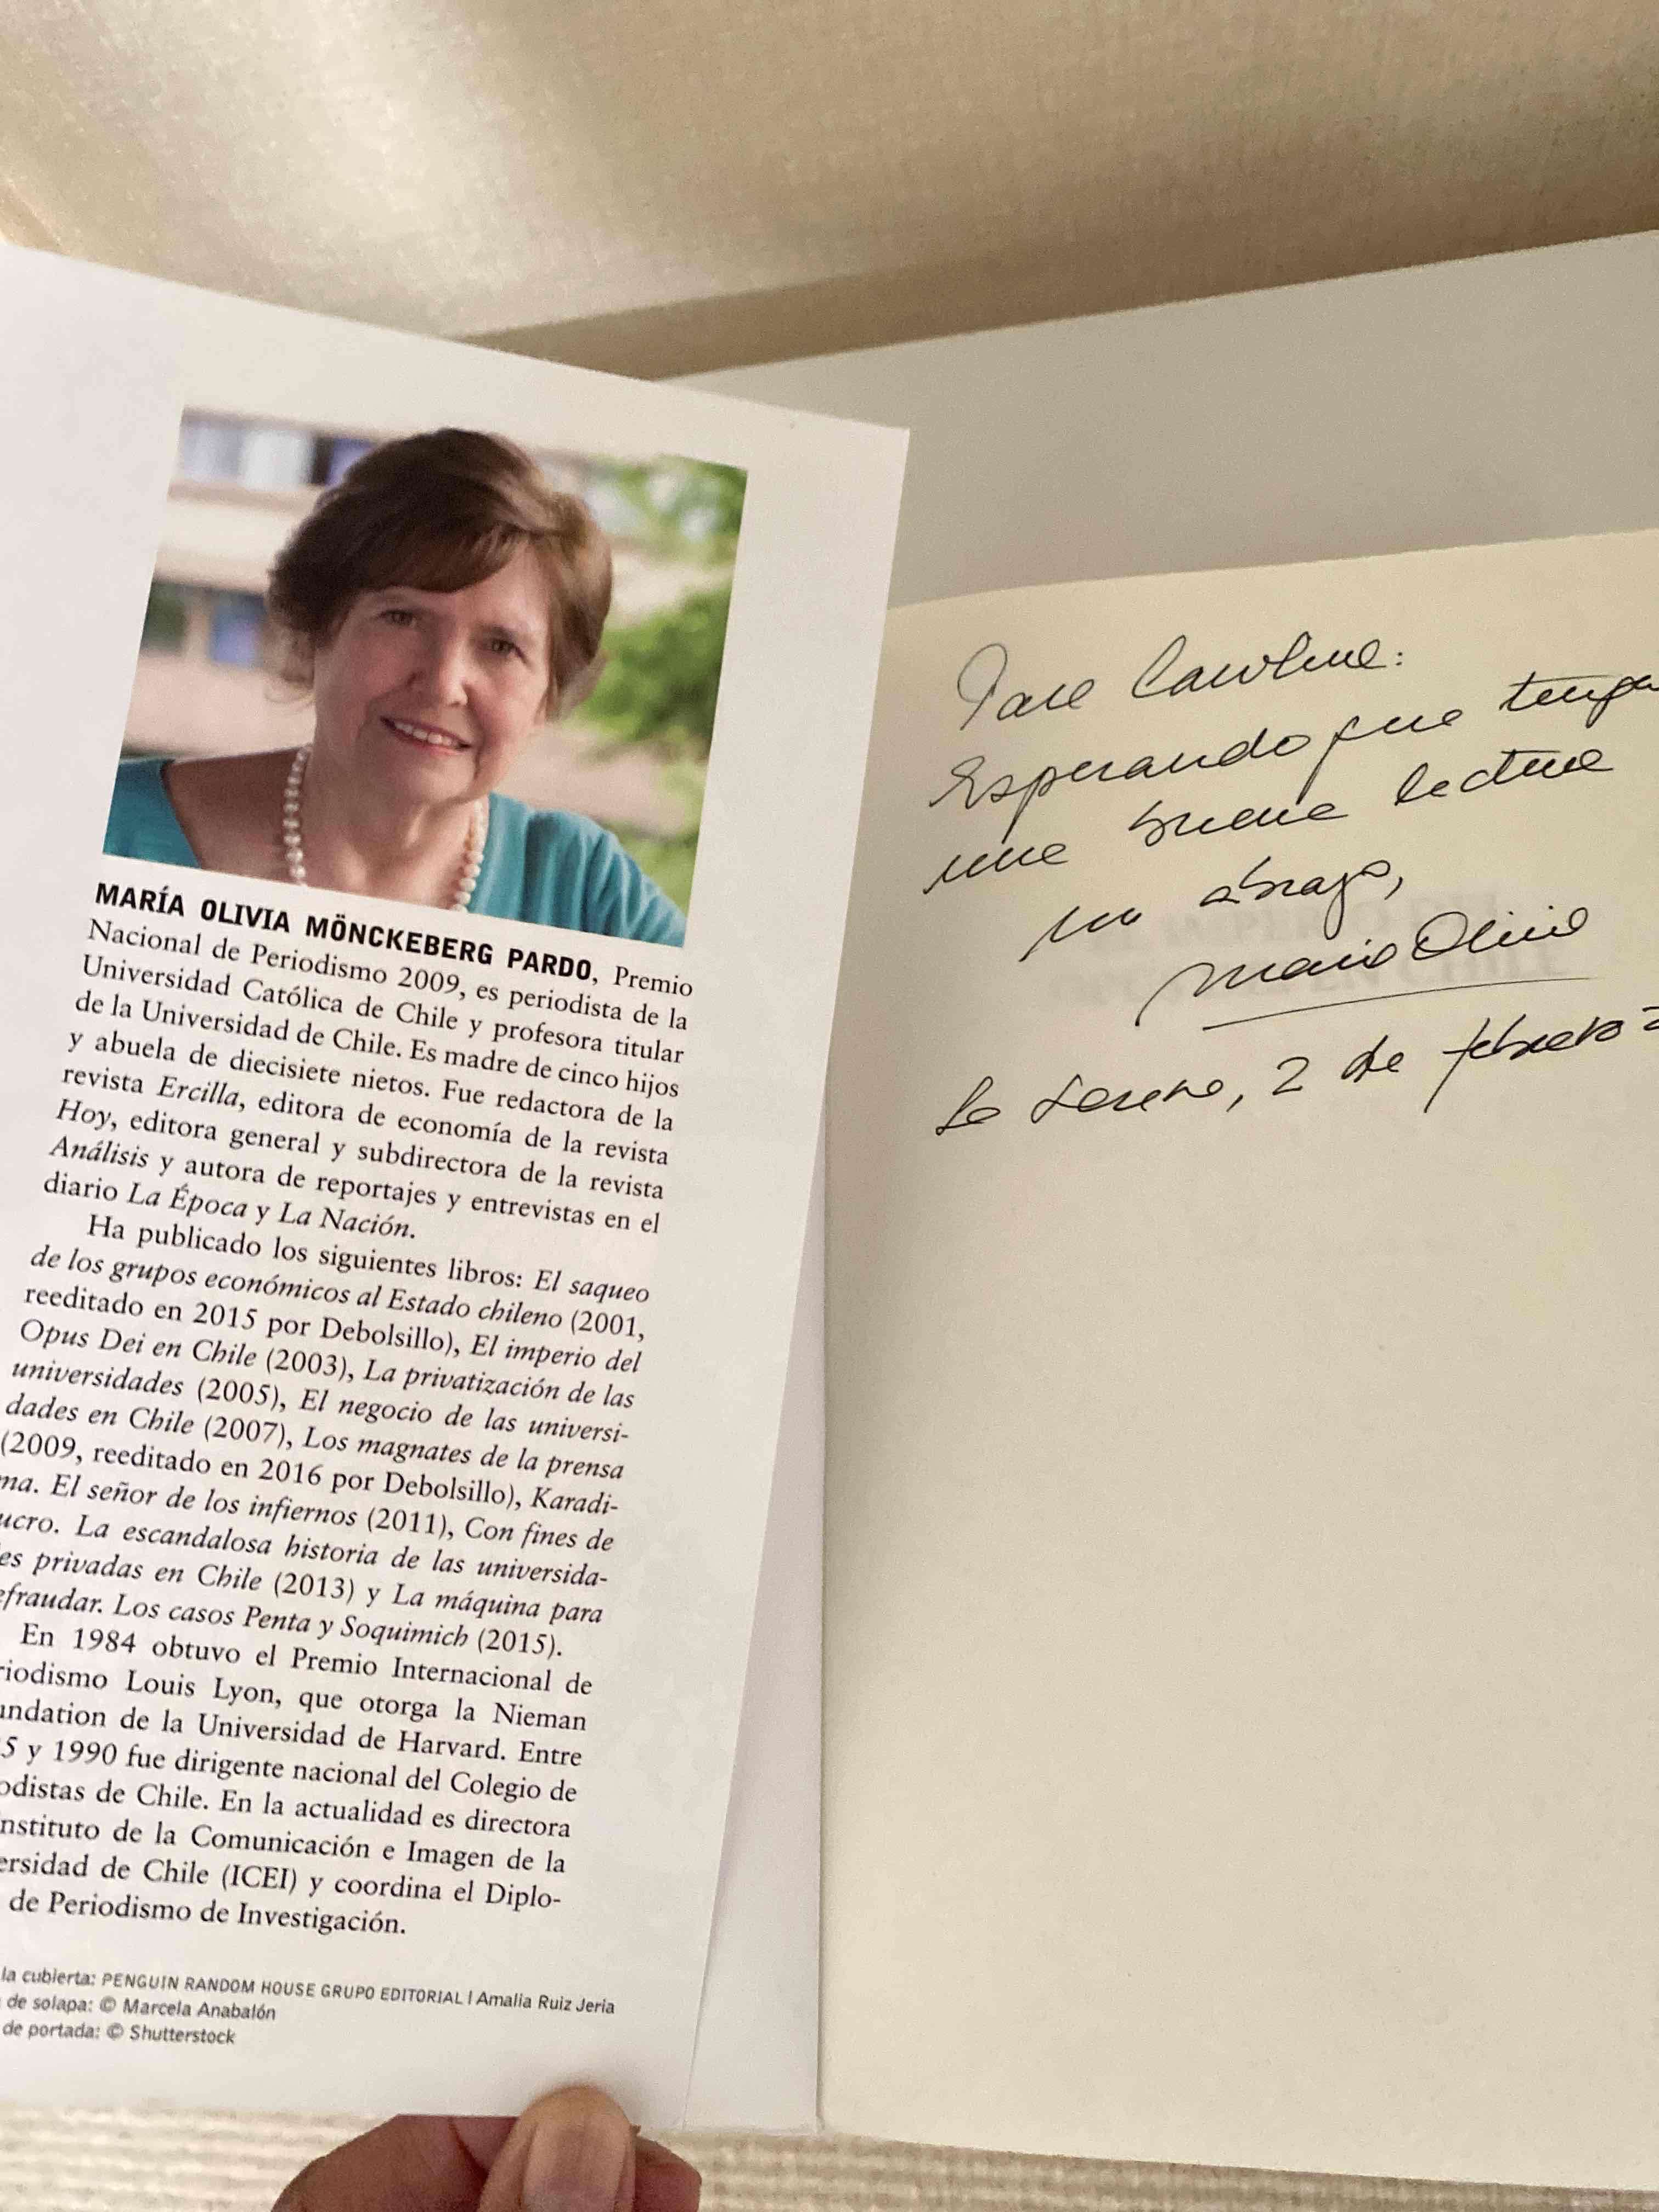 MARÍA OLIVIA MÖNCKEBERG PARDO, Premio
Nacional de Periodismo 2009, es periodista de la
Universidad Católica de Chile y profesora titular
de la Universidad de Chile. Es madre de cinco hijos
y abuela de diecisiete nietos. Fue redactora de la
revista Ercilla, editora de economía de la revista
Hoy, editora general y subdirectora de la revista
Análisis y autora de reportajes y entrevistas en el
diario La Época y La Nación.
Ha publicado los siguientes libros: El saqueo
de los grupos económicos al Estado chileno (2001,
reeditado en 2015 por Debolsillo), El imperio del
Opus Dei en Chile (2003), La privatización de las
universidades (2005), El negocio de las universi-
dades en Chile (2007), Los magnates de la prensa
(2009, reeditado en 2016 por Debolsillo), Karadi-
ma. El señor de los infiernos (2011), Con fines de
ucro. La escandalosa historia de las universida-
es privadas en Chile (2013) y La máquina para
efraudar. Los casos Penta y Soquimich (2015).
En 1984 obtuvo el Premio Internacional de
riodismo Louis Lyon, que otorga la Nieman
undation de la Universidad de Harvard. Entre
5 y 1990 fue dirigente nacional del Colegio de
odistas de Chile. En la actualidad es directora
nstituto de la Comunicación e Imagen de la
ersidad de Chile (ICEI) y coordina el Diplo-
de Periodismo de Investigación.
la cubierta: PENGUIN RANDOM HOUSE GRUPO EDITORIAL | Amalia Ruiz Jeria
de solapa: © Marcela Anabalón
de portada: © Shutterstock
Para Carolina:
Esperando que tenga
una buena lectura
un abrazo,
María Olivia
La Serena, 2 de febrero 2